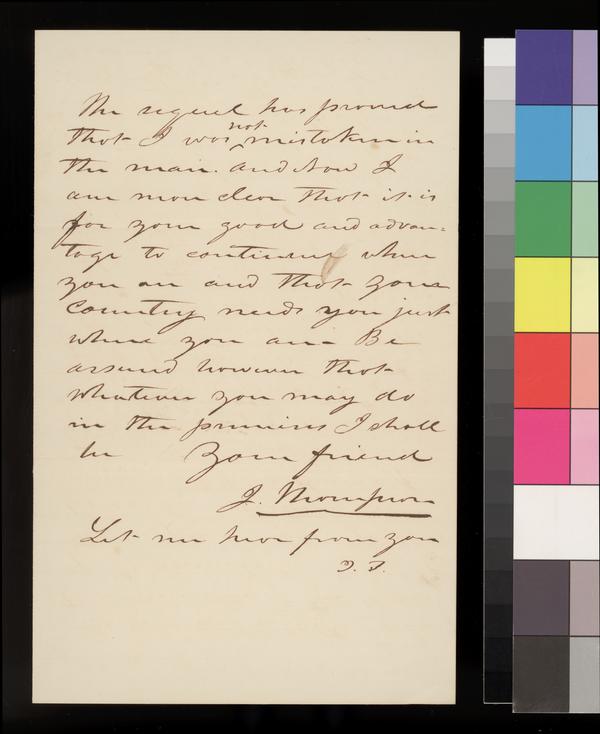 The sequel has proved
that I was not mistaken in
the main. And now I
am more clear that it is
for your good and advan=
tage to continue where
you are and that your
Country needs you just
where you are - Be
assured however that
whatever you may do
in the premises I shall
be Your friend
J. Thompson
Let me hear from you
J. T.